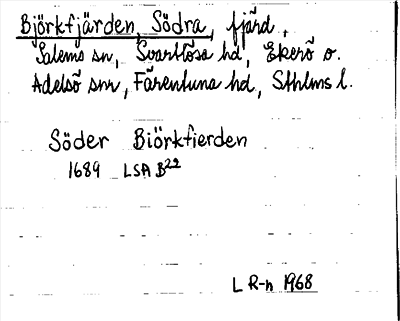 Björkfjärden, Södra, fjärd,
Salems sn, Svartlösa hd, Ekerö o.
Adelsö snr, Färentuna hd, Sthlms l.
Söder Biörkfierden
1689 LSA B22
L R-n 1968